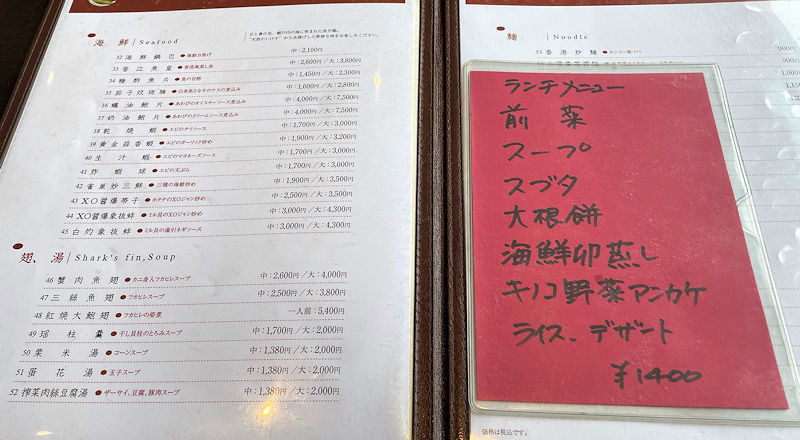 海鮮 | Seafood
32 海鮮鍋巴 ●海鮮お焦げ 中:2,100円
33 香江魚皇 ●香港風蒸し魚 中:2,600円/大:3,800円
34 糖酢魚片 ●魚の甘酢 中:1,450円/大:2,300円
中:1,600円/大:2,800円
36 蠔油鮑片 ●あわびのオイスターソース煮込み 中:4,000円/大:7,500円
37 奶油鮑片 ●あわびのクリームソース煮込み 中:4,000円/大:7,500円
38 乾焼蝦 ●エビのチリソース 中:1,700円/大:3,000円
39 黄金蒜香蝦 ●エビのガーリック炒め 中:1,900円/大:3,200円
40 生汁蝦 ●エビのマヨネーズソース 中:1,700円/大:3,000円
41 炸蝦球 ●エビの天ぷら 中:1,700円/大:3,000円
42 雀巣炒三鮮 ●三種の海鮮炒め 中:1,900円/大:3,500円
43 XO醤爆帯子 ●ホタテのXOジャン炒め 中:2,000円/大:3,500円
44 XO醤爆象抜蚌 ●ミル貝のXOジャン炒め 中:3,000円/大:4,300円
45 白灼象抜蚌 ●ミル貝の湯引ネギソース 中:3,000円/大:4,300円
翅、湯 | Shark's fin,Soup
46 蟹肉魚翅 ●カニ身入フカヒレスープ 中:2,600円/大:4,000円
47 三絲魚翅 ●フカヒレスープ 中:2,500円/大:3,800円
48 紅焼大鮑翅 ●フカヒレの姿煮 一人前:5,400円
49 瑶柱羹 ●干し貝柱のとろみスープ 中:1,700円/大:2,000円
50 粟米湯 ●コーンスープ 中:1,380円/大:2,000円
51 蛋花湯 ●玉子スープ 中:1,380円/大:2,000円
52 搾菜肉絲豆腐湯 ●ザーサイ、豆腐、豚肉スープ 中:1,380円/大:2,000円
麺 | Noodle
53 香港炒麺 ●ホンコン焼ソバ
ランチメニュー
前菜
スープ
スブタ
大根餅
海鮮卵蒸し
キノコ野菜アンカケ
ライス、デザート
¥1400
価格は税込です。